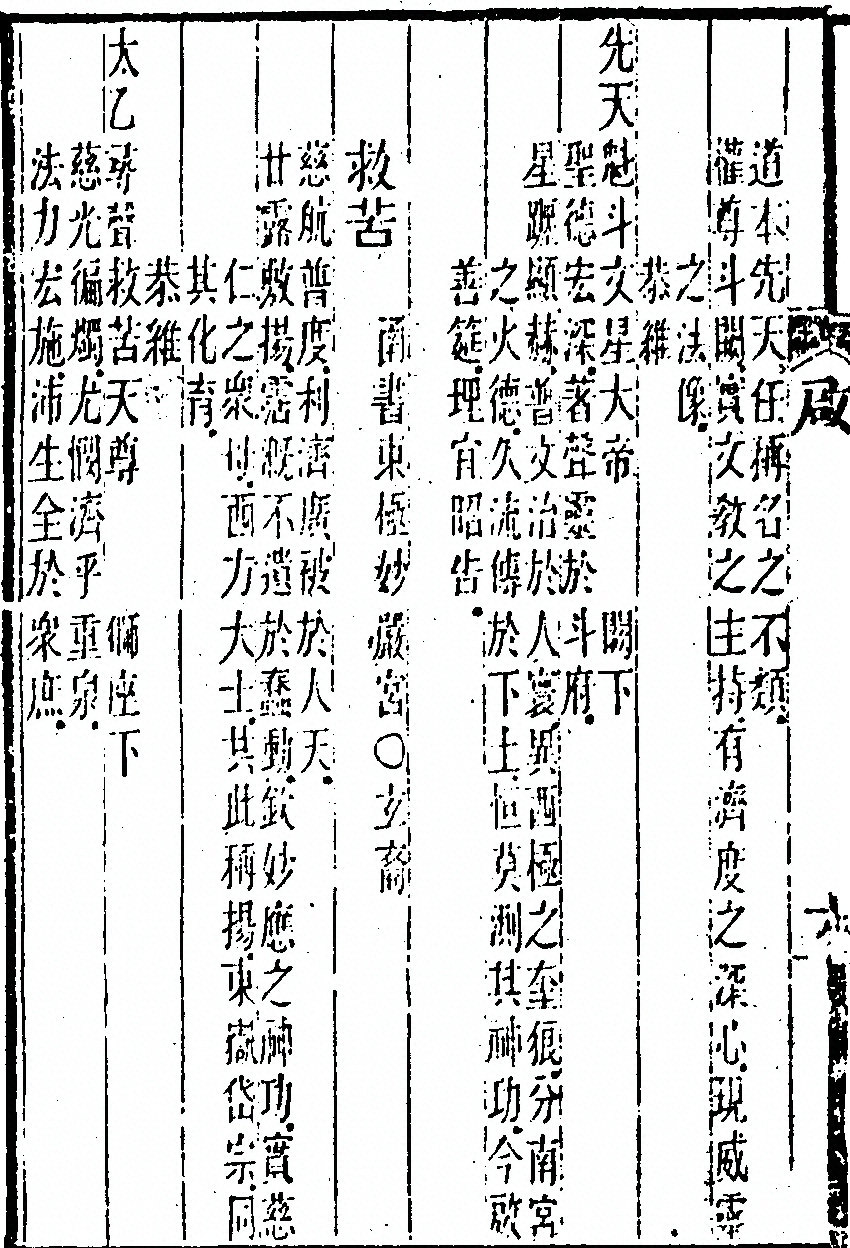 啟
六
道本先天任稱名之不類。
權尊斗闕。實文教之主持。有濟度之深心。現威靈
之法像。
恭維
先天魁斗文星大帝 閣下
聖德宏深。著聲靈於斗府。
星躔顯赫。普文治於人寰。異西極之奎狼。分南宮
之火德。久流傳於下土。恒莫測其神功。今啟
善筵。理宜昭告。
救苦 南書東極妙嚴宮〇玄裔
慈航普度。利濟廣被於人天。
甘露敷揚。霑溉不遺於蠢動。欽妙應之神功。實慈
仁之衆母。西方大士。其此稱揚。東嶽岱宗。同
其化育。
恭維
太乙尋聲救苦天尊 座下
慈光徧燭。尤憫濟乎重泉。
法力宏施。沛生全於衆庶。